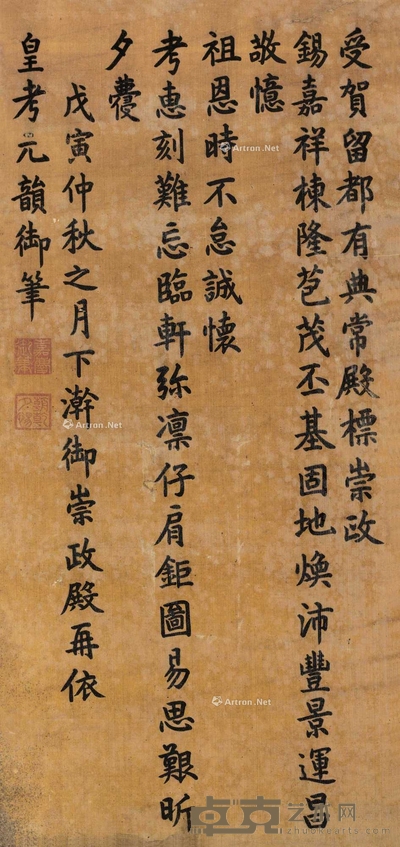 受賀留都有典常殿標崇政
錫嘉祥棟隆苞茂丕基固地煥沛豐景運昌
敬憶
祖恩時不怠誠懷
考惠刻難忘臨軒弥凜仔肩鉅圖易思艱昕
夕
戊寅仲秋之月下澣御崇政殿再依
皇考元韻御筆
Artron.Net
Artron.Net
Artron.Net
卓克艺术网